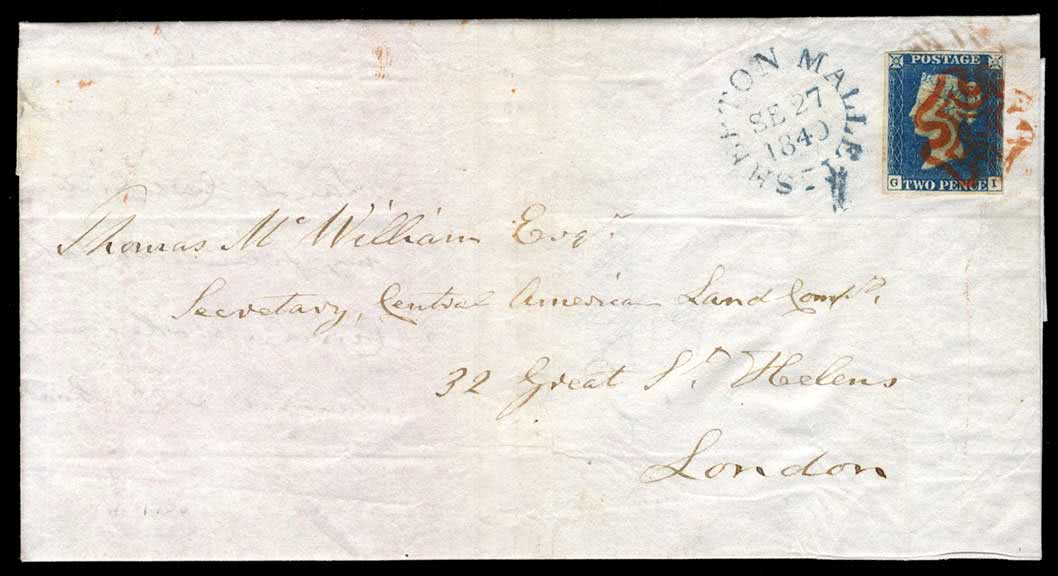 SHEPTON MALLET
SE 27
1840
POSTAGE
TWO PENCE
G I
Thomas Mc William Esqr.
Secretary, Central American Land Compy.
32 Great St. Helens
London